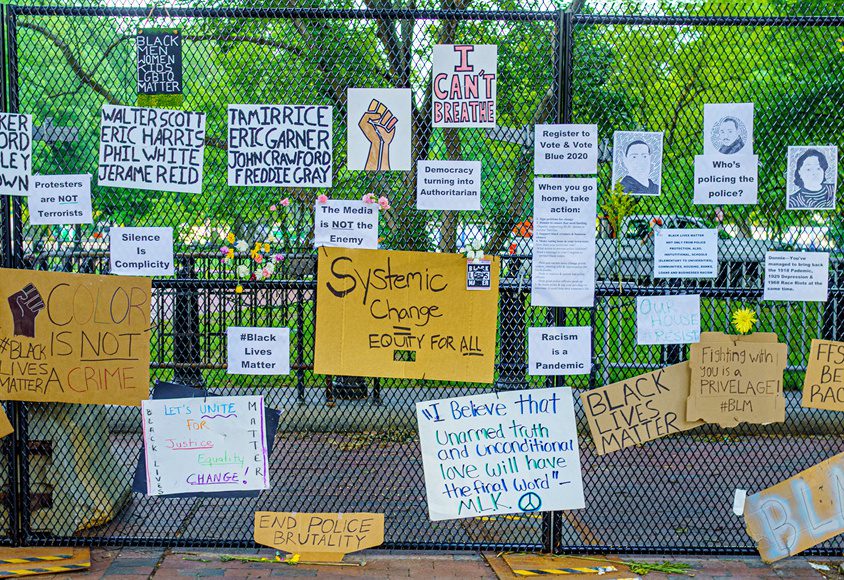 BLACK
MEN
WOMEN
KIDS
LGBTQ
MATTER
I
CAN'T
BREATHE
KER
ORD
LEY
OWN
WALTER SCOTT
ERIC HARRIS
PHIL WHITE
JERAME REID
TAMIR RICE
ERIC GARNER
JOHN CRAWFORD
FREDDIE GRAY
Register to
Vote & Vote
Blue 2020
Who's
policing the
police?
Protesters
are NOT
Terrorists
Democracy
turning into
Authoritarian
When you go
home, take
action:
The Media
is NOT the
Enemy
Silence Is
Complicity
BLACK LIVES MATTER
NOT ONLY FROM POLICE
PROTECTION, ALSO,
INSTITUTIONAL, SCHOOLS
(ELEMENTARY TO UNIVERSITIES),
COMMUNITIES, HOUSING, BANKS,
Donnie—You've
managed to bring back
the 1918 Pandemic,
1929 Depression &
1968 Race Riots at the
same time.
COLOR
IS NOT
A CRIME
#BLACK
LIVES
MATTER
Systemic
Change
=
EQUITY FOR ALL
BLACK
LIVES
MATTER
OUR HOUSE
#RESIST
#Black
Lives
Matter
Racism
is a
Pandemic
Fighting with
you is a
PRIVELAGE!
#BLM
BLACK
LIVES
MATTER
FFS
BE
RAC
LET'S UNITE
FOR
Justice
Equality
CHANGE!
BLACK LIVES
MATTER
"I Believe that
Unarmed truth
and unconditional
love will have
the final word"-
MLK
END POLICE
BRUTALITY
BL